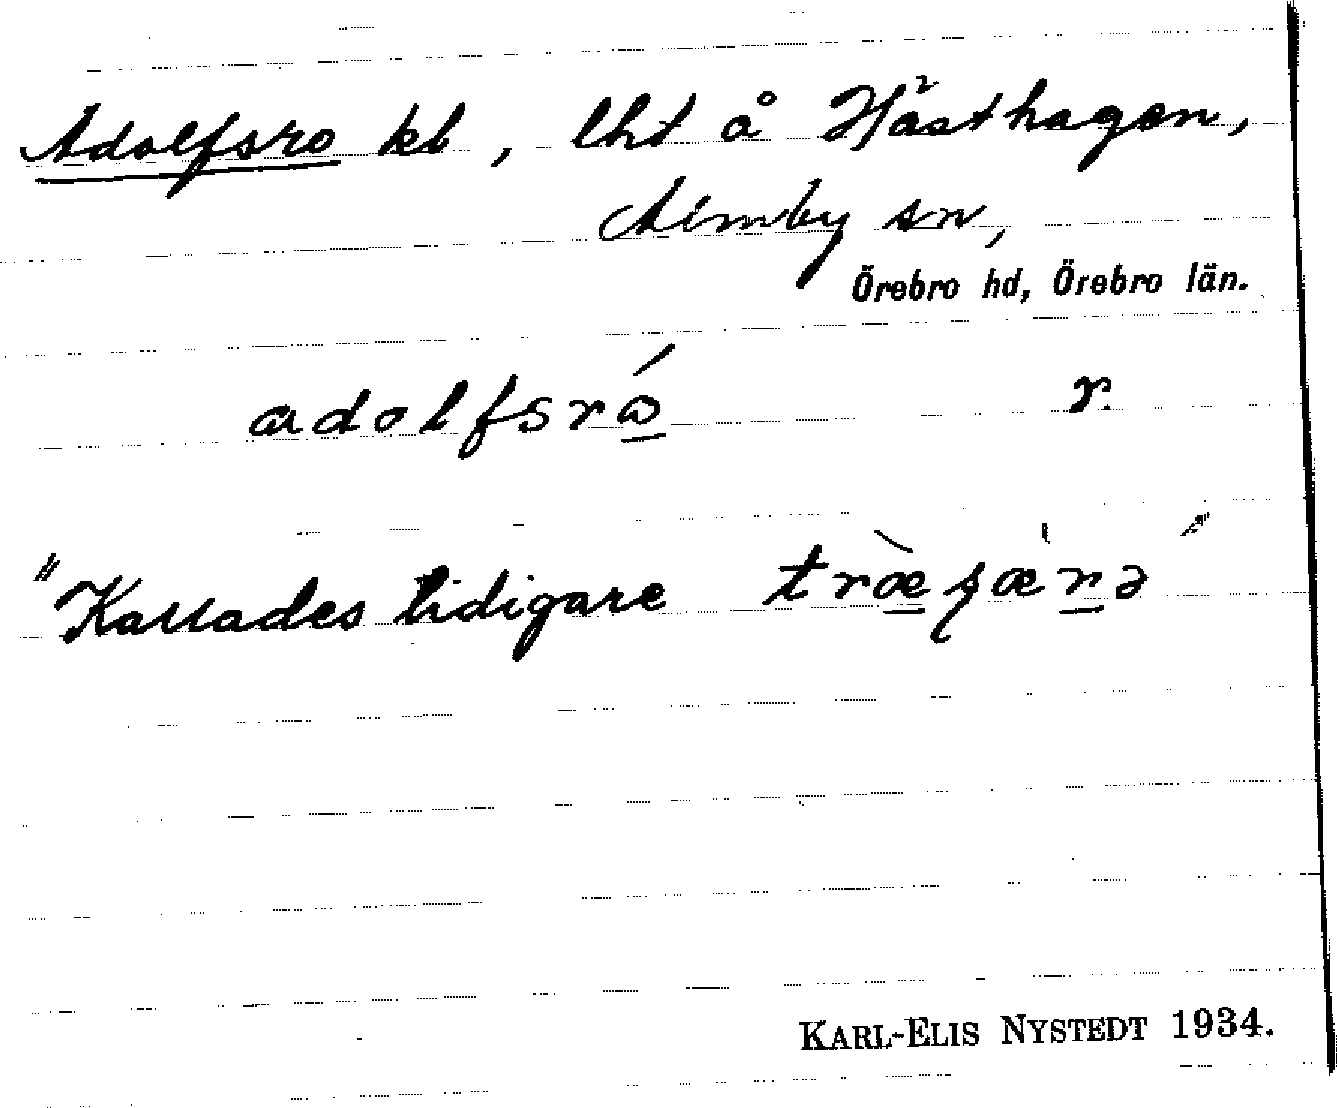 Adolfsro kl, lht å Hästhagen,
Almby sn,
Örebro hd, Örebro län.
adolfsró r.
"Kallades tidigare
KARL-ELIS NYSTEDT 1934.